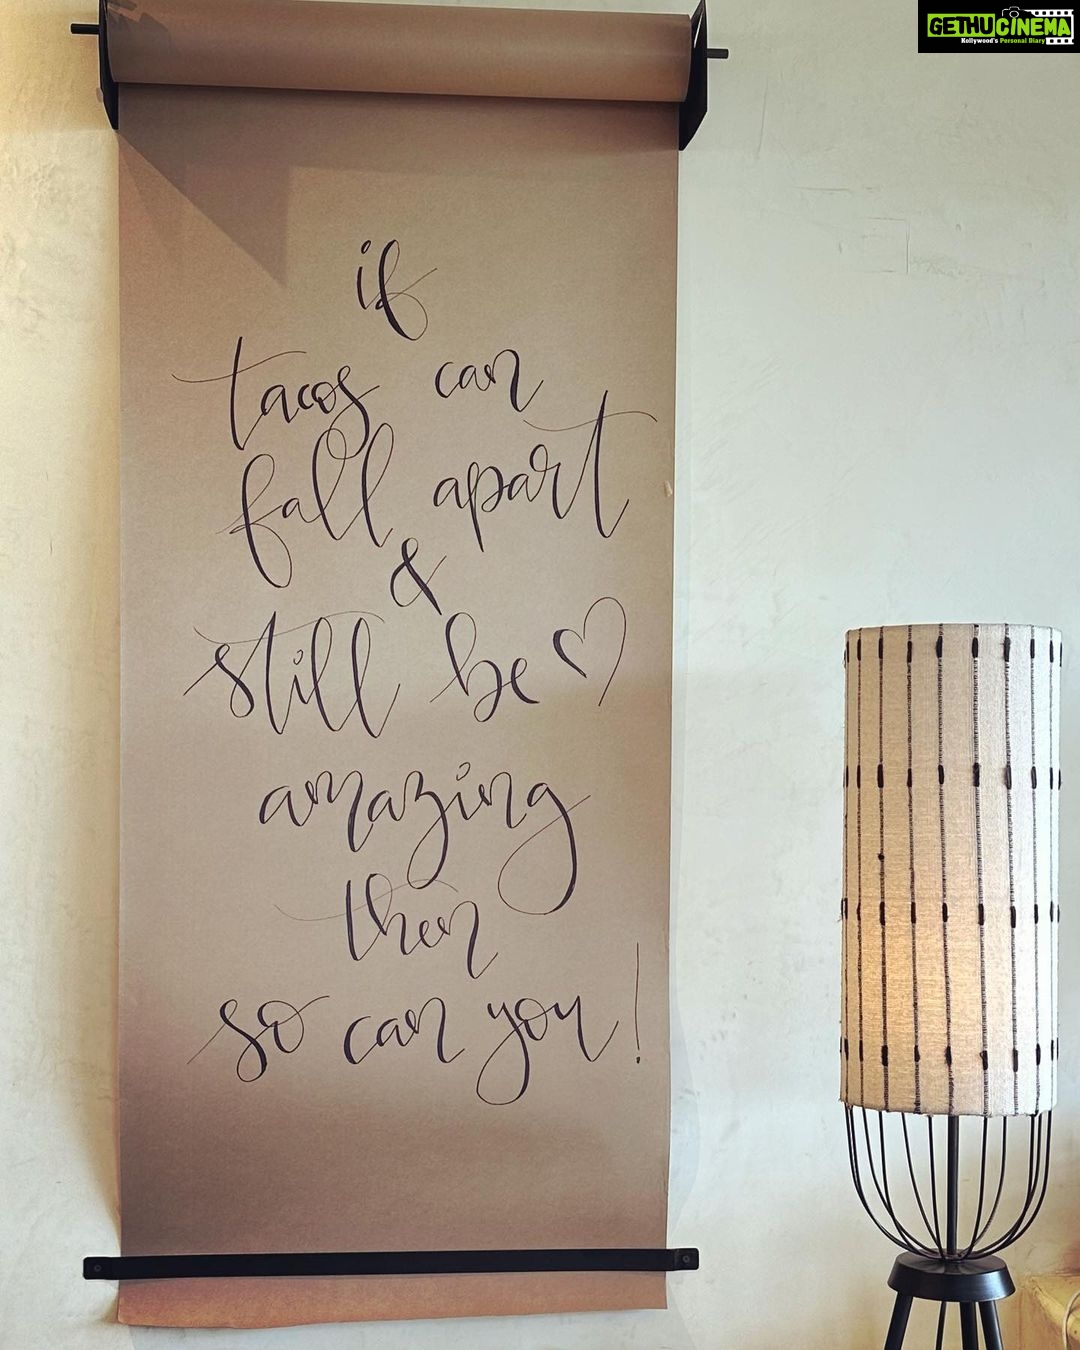 GETHU CINEMA
Kollywood's Personal Diary
if
tacos can
fall apart
&
still be ♡
amazing
then
so can you!